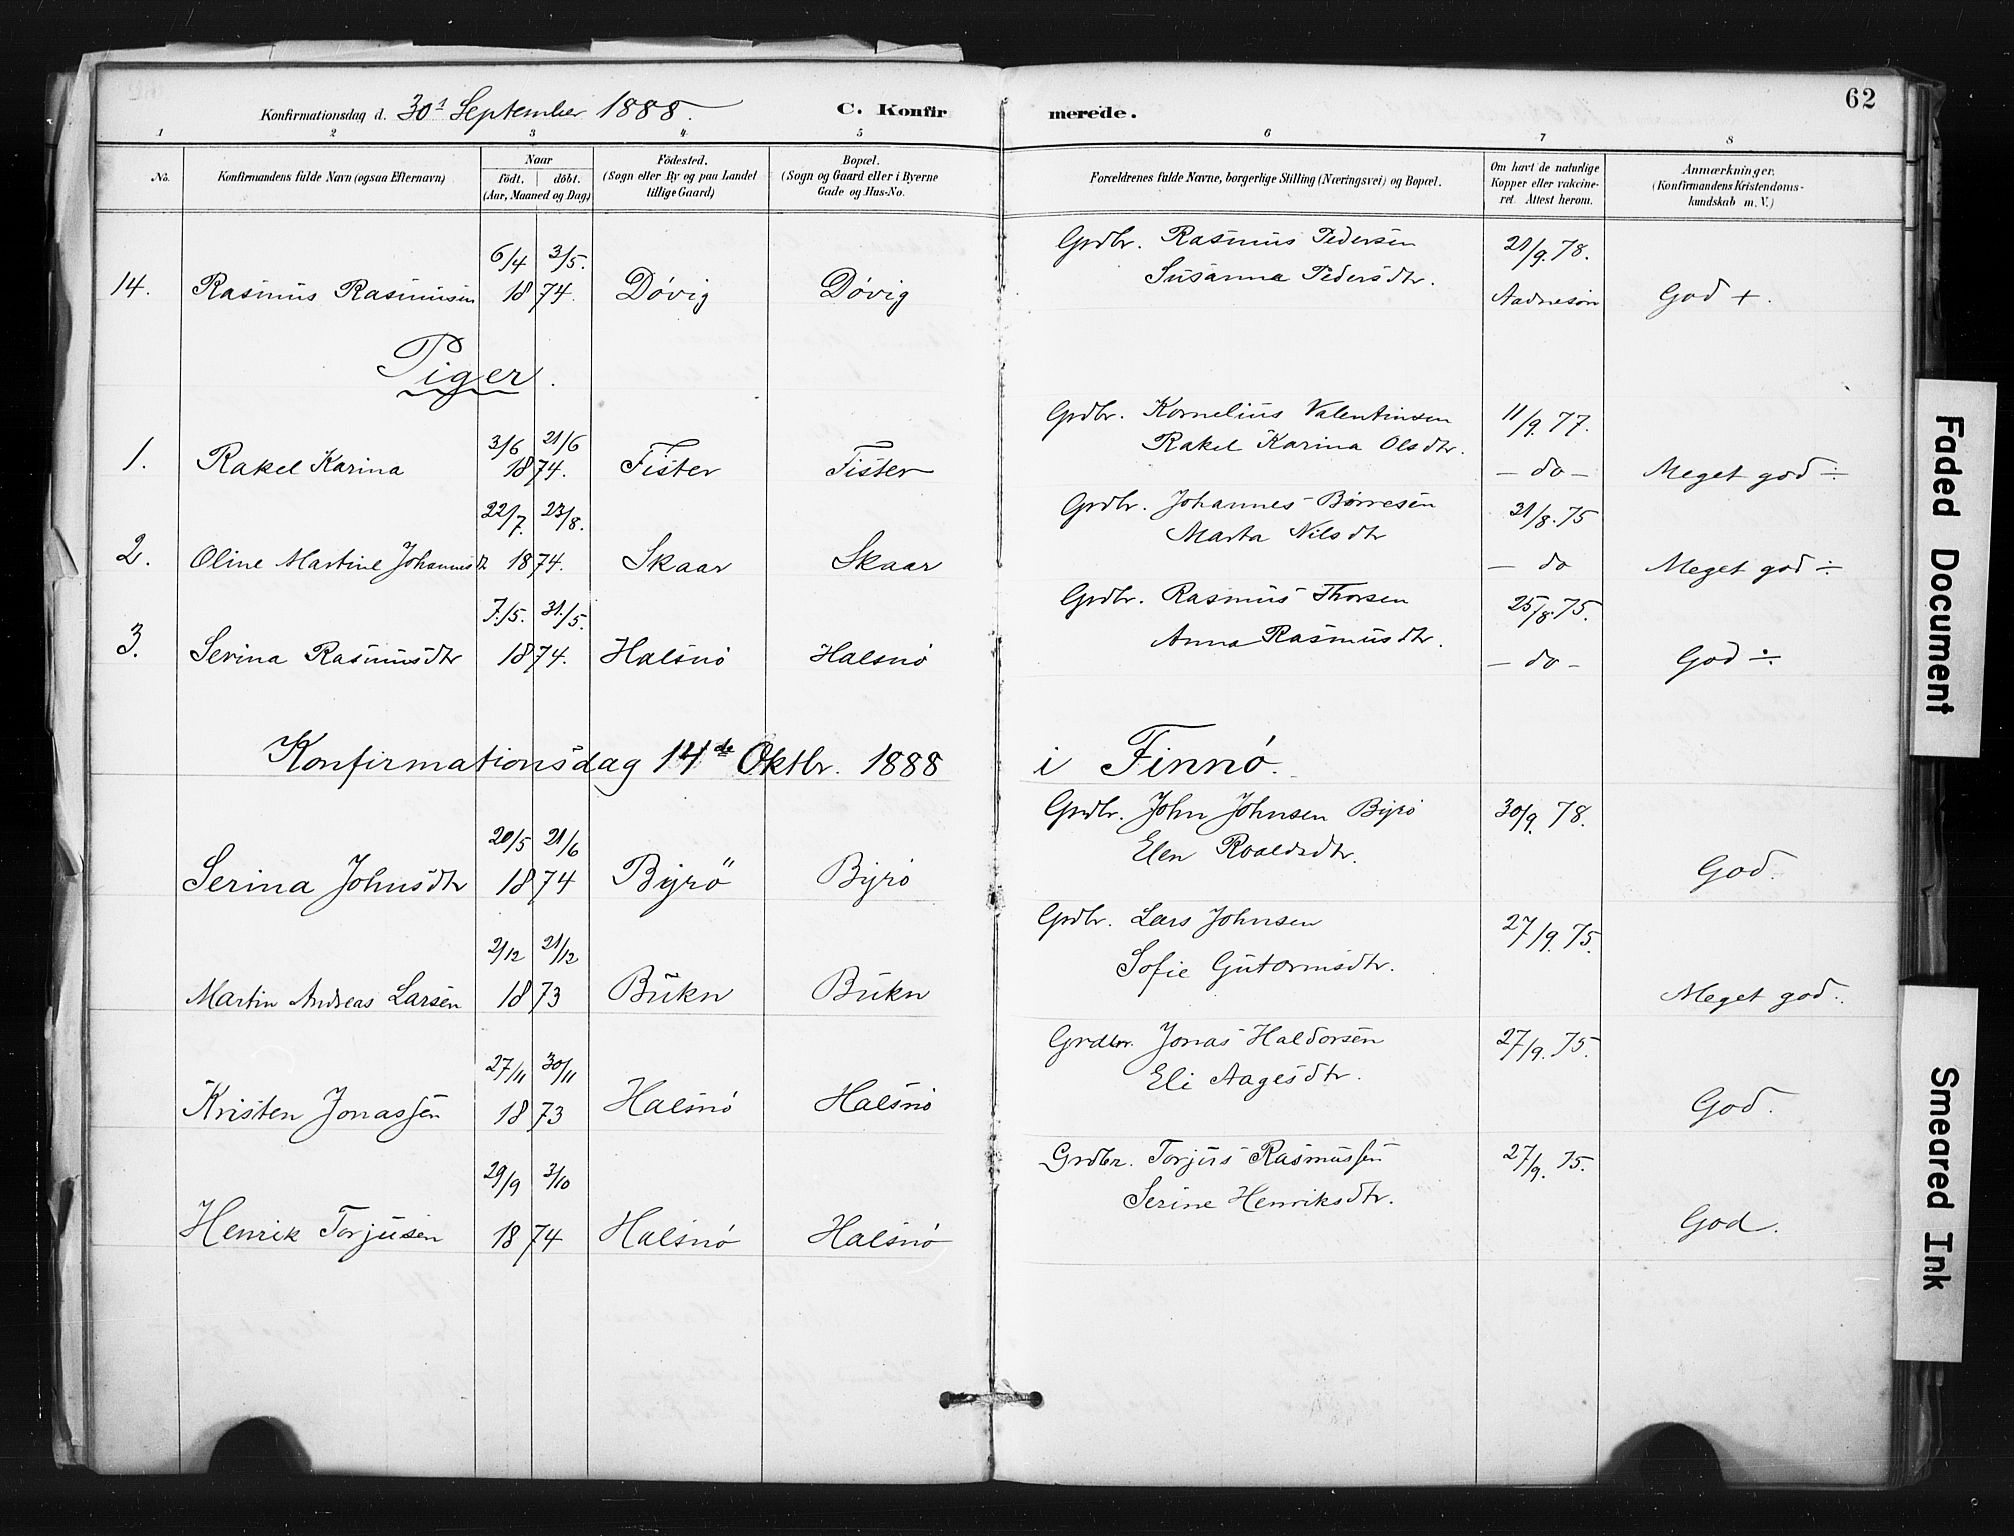 62
Konfirmationsdag d. 30t September 1888. C. Konfirmerede.
1 2 3 4 5 6 7 8
No. Konfirmandens fulde Navn (ogsaa Efternavn) Naar født. døbt. (Aar, Maaned og Dag) Fødested. (Sogn eller By og paa Landet tillige Gaard) Bopæl. (Sogn og Gaard eller i Byerne Gade og Hus-No. Forældrenes fulde Navne, borgerlige Stilling (Næringsvei) og Bopæl. Om havt de naturlige Kopper eller vakcineret. Attest herom. Anmærkninger. (Konfirmandens Kristendomskundskab m.V.)
6/4 3/5. Grdbr. Rasmus Pedersen 21/9.78.
Susanna Pedersdtr.
14. Rasmus Rasmussen 1874. Døvig Døvig Aadnesön God +.
Piger.
3/6 21/6 Grdbr. Kornelius Valentinsen 11/9.77.
Rakel Karina Olsdtr.
1. Rakel Karina 1874. Fister Fister — do — Meget god ÷
22/7. 23/8. Grdbr. Johannes Børresen 21/8.75
Marta Nilsdtr
2. Oline Martine Johannisdt 1874. Skaar Skaar — do Meget god ÷
7/5. 31/5. Grdbr. Rasmus Thorsen 25/8.75.
Anna Rasmusdtr.
3. Serina Rasmusdtr 1874. Halsnö Halsnö — do — God ÷
Konfirmationsdag 14de Oktbr. 1888 i Finnö.
20/5 21/6 Grdbr. John Johnsen Byrö 30/9.78.
Elen Roaldsdtr.
Serina Johnsdtr 1874 Byrö Byrö God.
2/12 21/12 Grdbr. Lars Johnsen 27/9.75.
Sofie Gutormsdtr.
Martin Andreas Larsen 1873 Bukn Bukn Meget god.
27/11 30/11 Grdbr. Jonas Haldorsen 27/9.75.
Eli Aagesdtr.
Kristen Jonassen 1873 Halsnö Halsnö God.
29/9 3/10 Grdbr. Torjus Rasmussen 27/9.75.
Serine Henriksdtr.
Henrik Torjusen 1874 Halsnö Halsnö God.
Faded Document
Smeared Ink